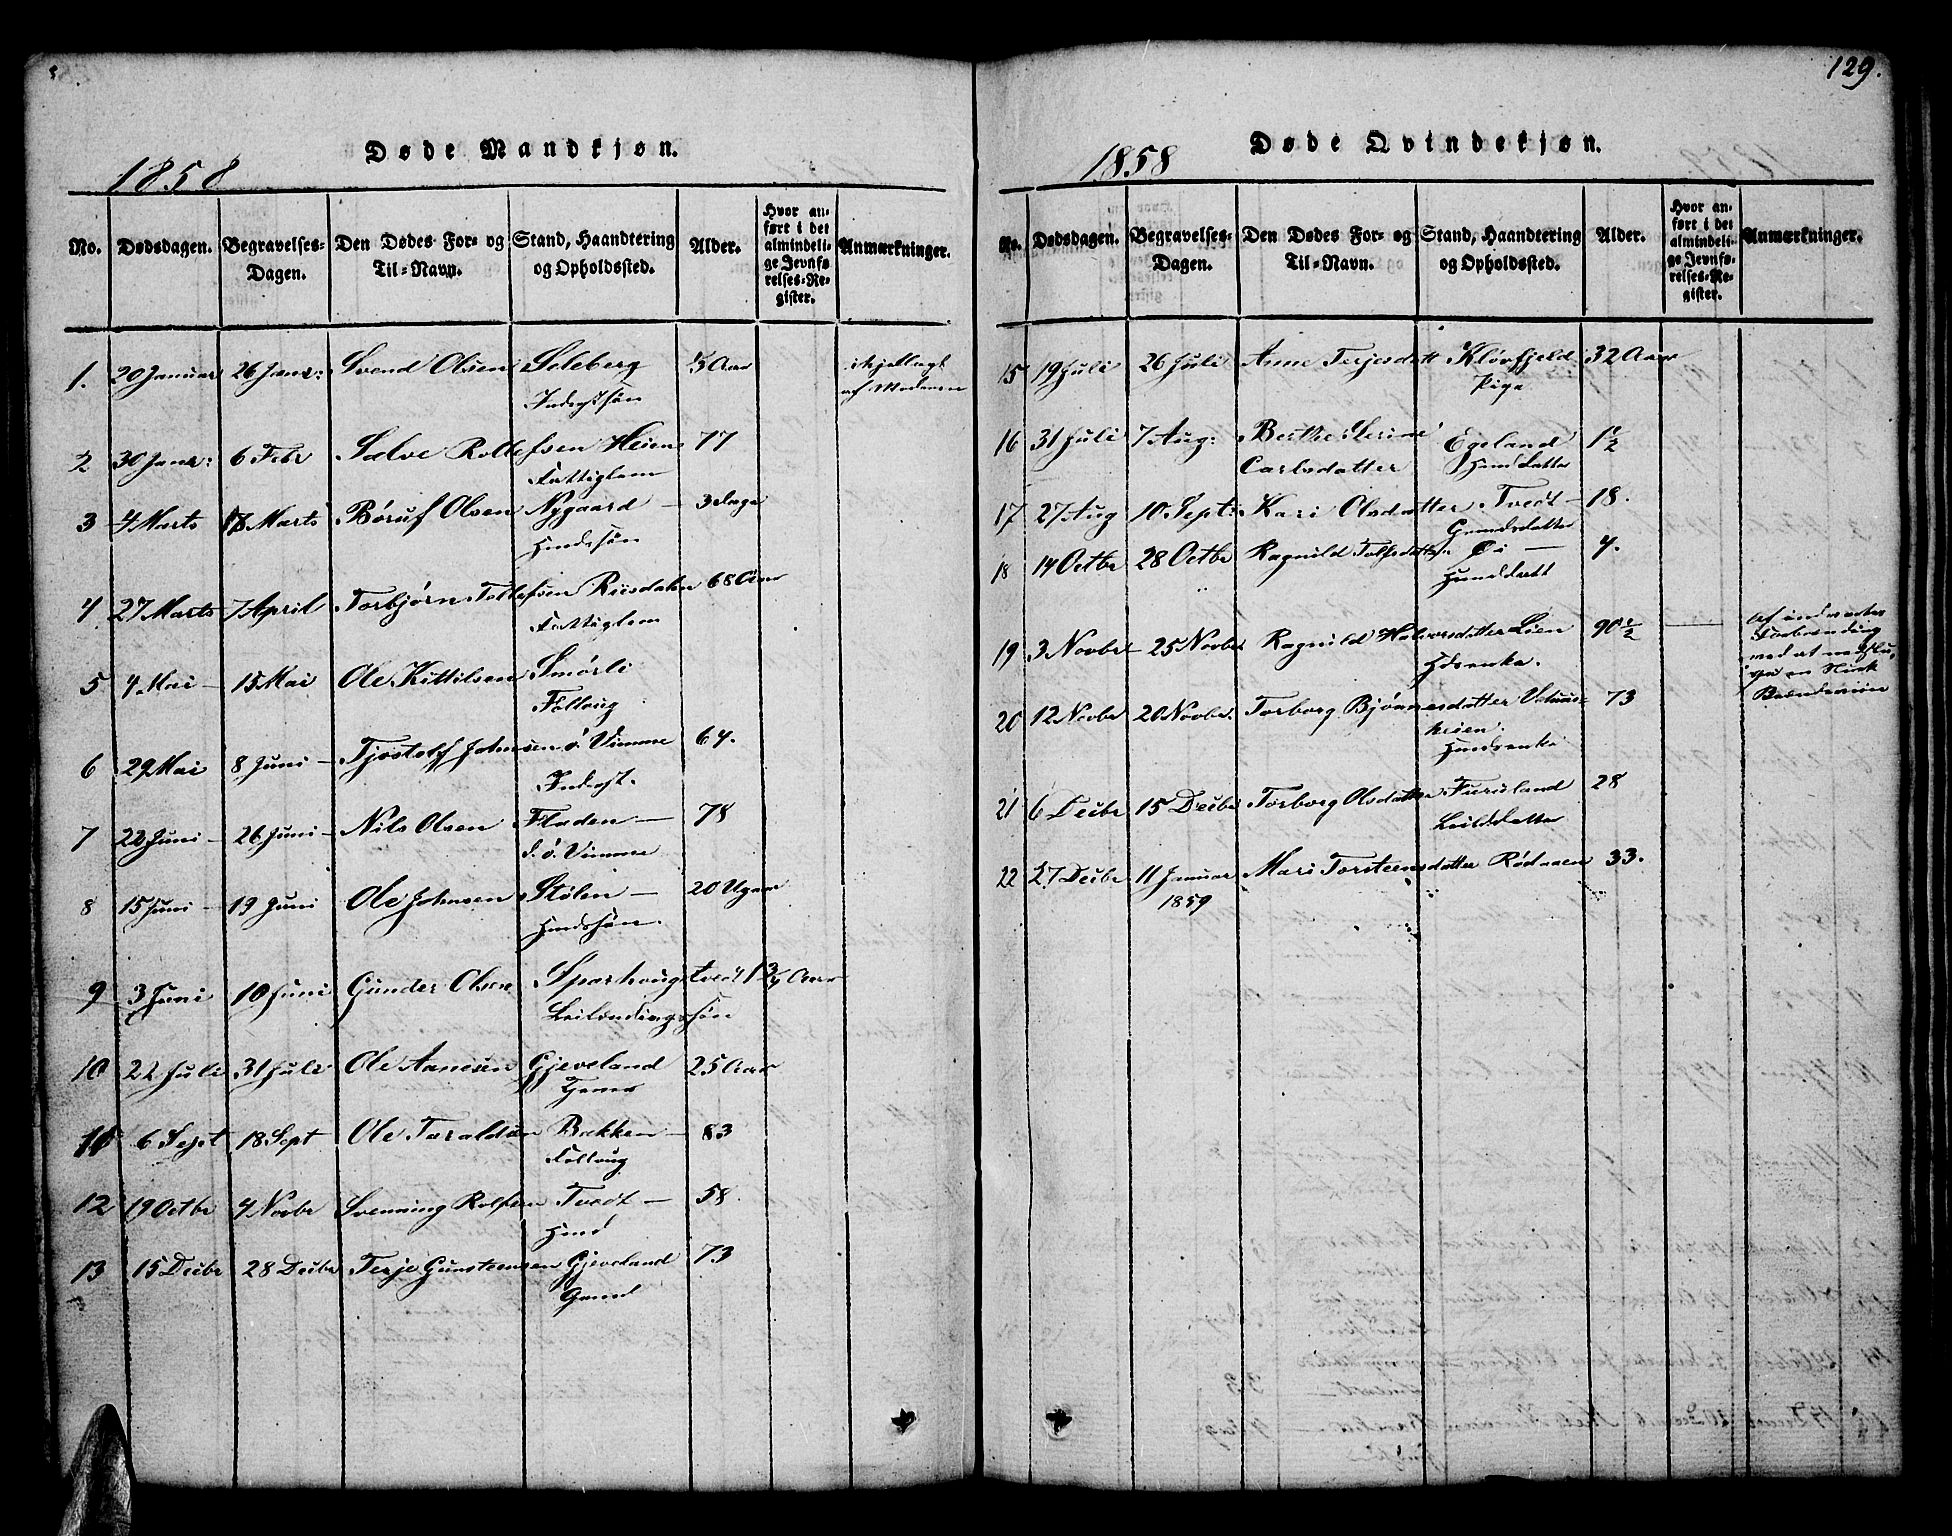 129.
Døde Mandkjøn.
1858
No. Dødsdagen. Begravelses-Dagen. Den Dødes For- og Til-Navn. Stand, Haandtering og Opholdssted. Alder. Hvor anført i det almindelige Jevnførelses-Register. Anmærkninger.
1. 20 Januar 26 Janr: Svend Olsen Soleberg
ihjellagt
af Moderen
2 30 Janr: 6 Febr Salve Rollefsen Heien 77
Fattiglem
3 4 Marts Marts Børuf Olsen Nygaard — 3 Dage
4 27 Marts 7 April Torbjørn Tellefsen Riisdalen 68 Aar
Fattiglem
5 4 Mai — 15 Mai Ole Kittilsen Smørli
Folloug
6 29 Mai 8 Juni — Tjostolf Johnsen ø. Vimme 64.
Inderst.
7 22 Juni — 26 Juni — Nils Olsen Fladen — 78
ø. Vimme
8 15 Juni — 19 Juni Ole Johnsen Stølen — 20 Uger
9 3 Juni 10 Juni Gunder Olsen Sparhougtvedt 1 3/4 Aar
Leilændingssøn
10 22 Juli 31 Juli Ole Aanesen Gjeveland 25 Aar
11 6 Sept 18 Sept Ole Taraldsen Bakken — 83
Folloug
12 19 Octbr 4 Novbr Svenning Rolfsen Tvedt — 58
13 15 Decbr 28 Decbr Terje Gunsteensen Gjeveland 73
Døde Qvindekjøn.
1858
No. Dødsdagen. Begravelses-Dagen. Den Dødes For- og Til-Navn. Stand, Haandtering og Opholdssted. Alder. Hvor anført i det almindelige Jevnførelses-Register. Anmærkninger.
15 19 Juli 26 Juli Anne Terjesdatt Kløvfjeld 32 Aar
Pige
16 31 Juli 7 Aug: Berthe Serine Egeland 1 1/2
Carlsdatter
17 27 Aug 10 Sept: Kari Olsdatter Tvedt — 18.
18 14 Octbr 28 Octbr Ragnild Tolfsdatter — 4.
19 3 Novbr — 25 Novbr Ragnild Halvorsdatter Lien 90 1/2
af indvortes
Forbrænding
ved at
en
20 12 Novbr 20 Novbr. Torborg Bjønnesdatter 73
heien.
21 6 Decbr 15 Decbr Torborg Olsdatter Furuland 28
22 27 Decbr 11 Januar Mari Torsteensdatter Rødaaen 33.
1859